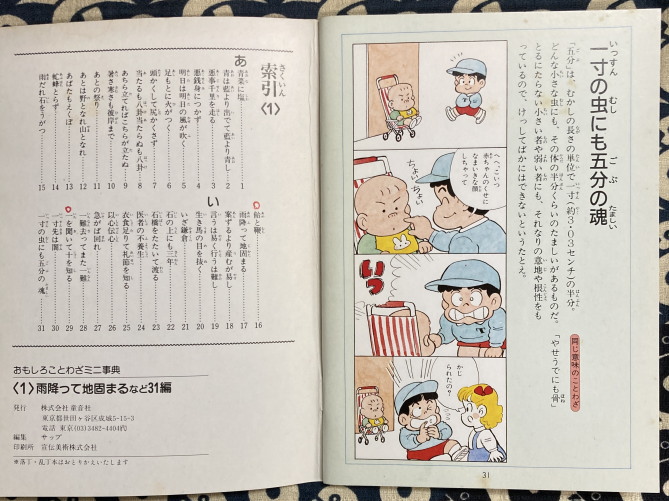 索引〈1〉
さくいん
あ
青菜に塩 1
青は藍より出でて藍より青し 2
悪事千里を走る 3
悪銭身につかず 4
明日は明日の風が吹く 5
足もとに火がつく 6
頭かくして尻かくさず 7
当たるも八卦当たらぬも八卦 8
あちら立てればこちらが立たぬ 9
暑さ寒さも彼岸まで 10
あとの祭り 11
あとは野となれ山となれ 12
あばたもえくぼ 13
虻蜂とらず 14
雨だれ石をうがつ 15
飴と鞭 16
雨降って地固まる 17
い
案ずるより産むが易し 18
言うは易く行うは難し 19
生き馬の目を抜く 20
いざ鎌倉 21
石の上にも三年 22
石橋をたたいて渡る 23
医者の不養生 24
衣食足りて礼節を知る 25
以心伝心 26
急がば回れ 27
一難去ってまた一難 28
一を聞いて十を知る 29
一寸先は闇 30
一寸の虫にも五分の魂 31
おもしろことわざミニ事典
〈1〉雨降って地固まるなど31編
発行 株式会社童音社
東京都世田ヶ谷区成城5-15-3
電話 東京(03)3482-4404代
編集 サップ
印刷所 宣伝美術株式会社
※落丁・乱丁本はおとりかえいたします
一寸の虫にも五分の魂
いっすん むし ごぶ たましい
「五分」は、むかしの長さの単位で一寸(約3・03センチ)の半分。
どんな小さな虫にも、その体の半分くらいのたましいがあるものだ。
とるにたらない小さい者や弱い者にも、それなりの意地や根性をも
っているので、けっしてばかにはできないというたとえ。
同じ意味のことわざ
「やせうでにも骨」
へへこいつ
赤ちゃんのくせに
なまいきな顔
しちゃって
ちょいちょい
いっ
か
じられたの?
31